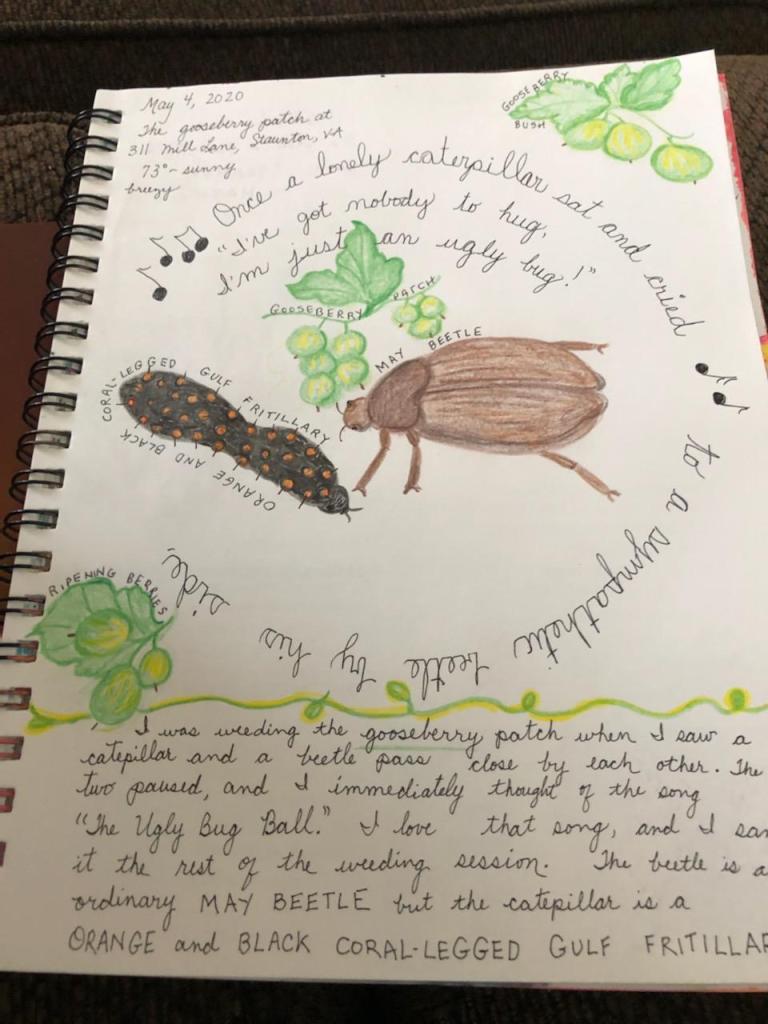 May 4, 2020
The gooseberry patch at
311 Mill Lane, Staunton, VA
73° - sunny
breezy
GOOSEBERRY
BUSH
Once a lonely caterpillar sat and cried
"I've got nobody to hug,
I'm just an ugly bug!"
to a sympathetic beetle by his side,
GOOSEBERRY PATCH
MAY BEETLE
CORAL-LEGGED GULF FRITILLARY
ORANGE AND BLACK
RIPENING BERRIES
I was weeding the gooseberry patch when I saw a
catepillar and a beetle pass close by each other. The
two paused, and I immediately thought of the song
"The Ugly Bug Ball." I love that song, and I san
it the rest of the weeding session. The beetle is a
ordinary MAY BEETLE but the catepillar is a
ORANGE and BLACK CORAL-LEGGED GULF FRITILLAR